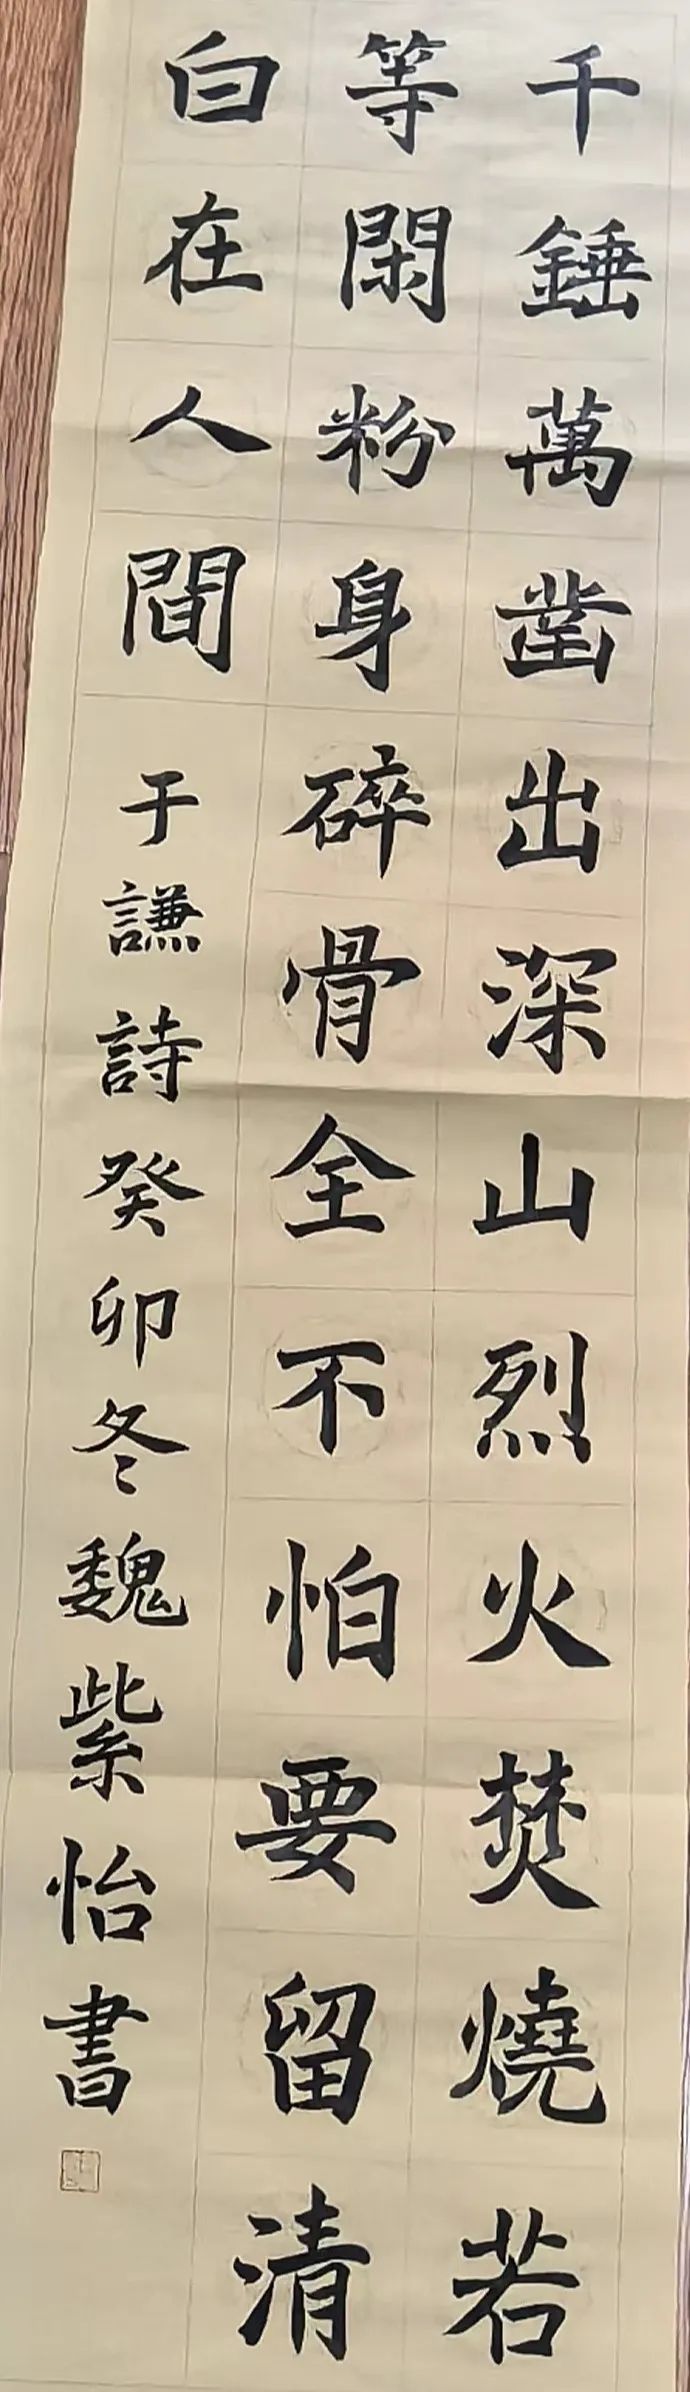 千錘萬凿出深山烈火焚燒若
等閑粉身碎骨全不怕要留清
白在人間
于謙詩癸卯冬魏紫怡書